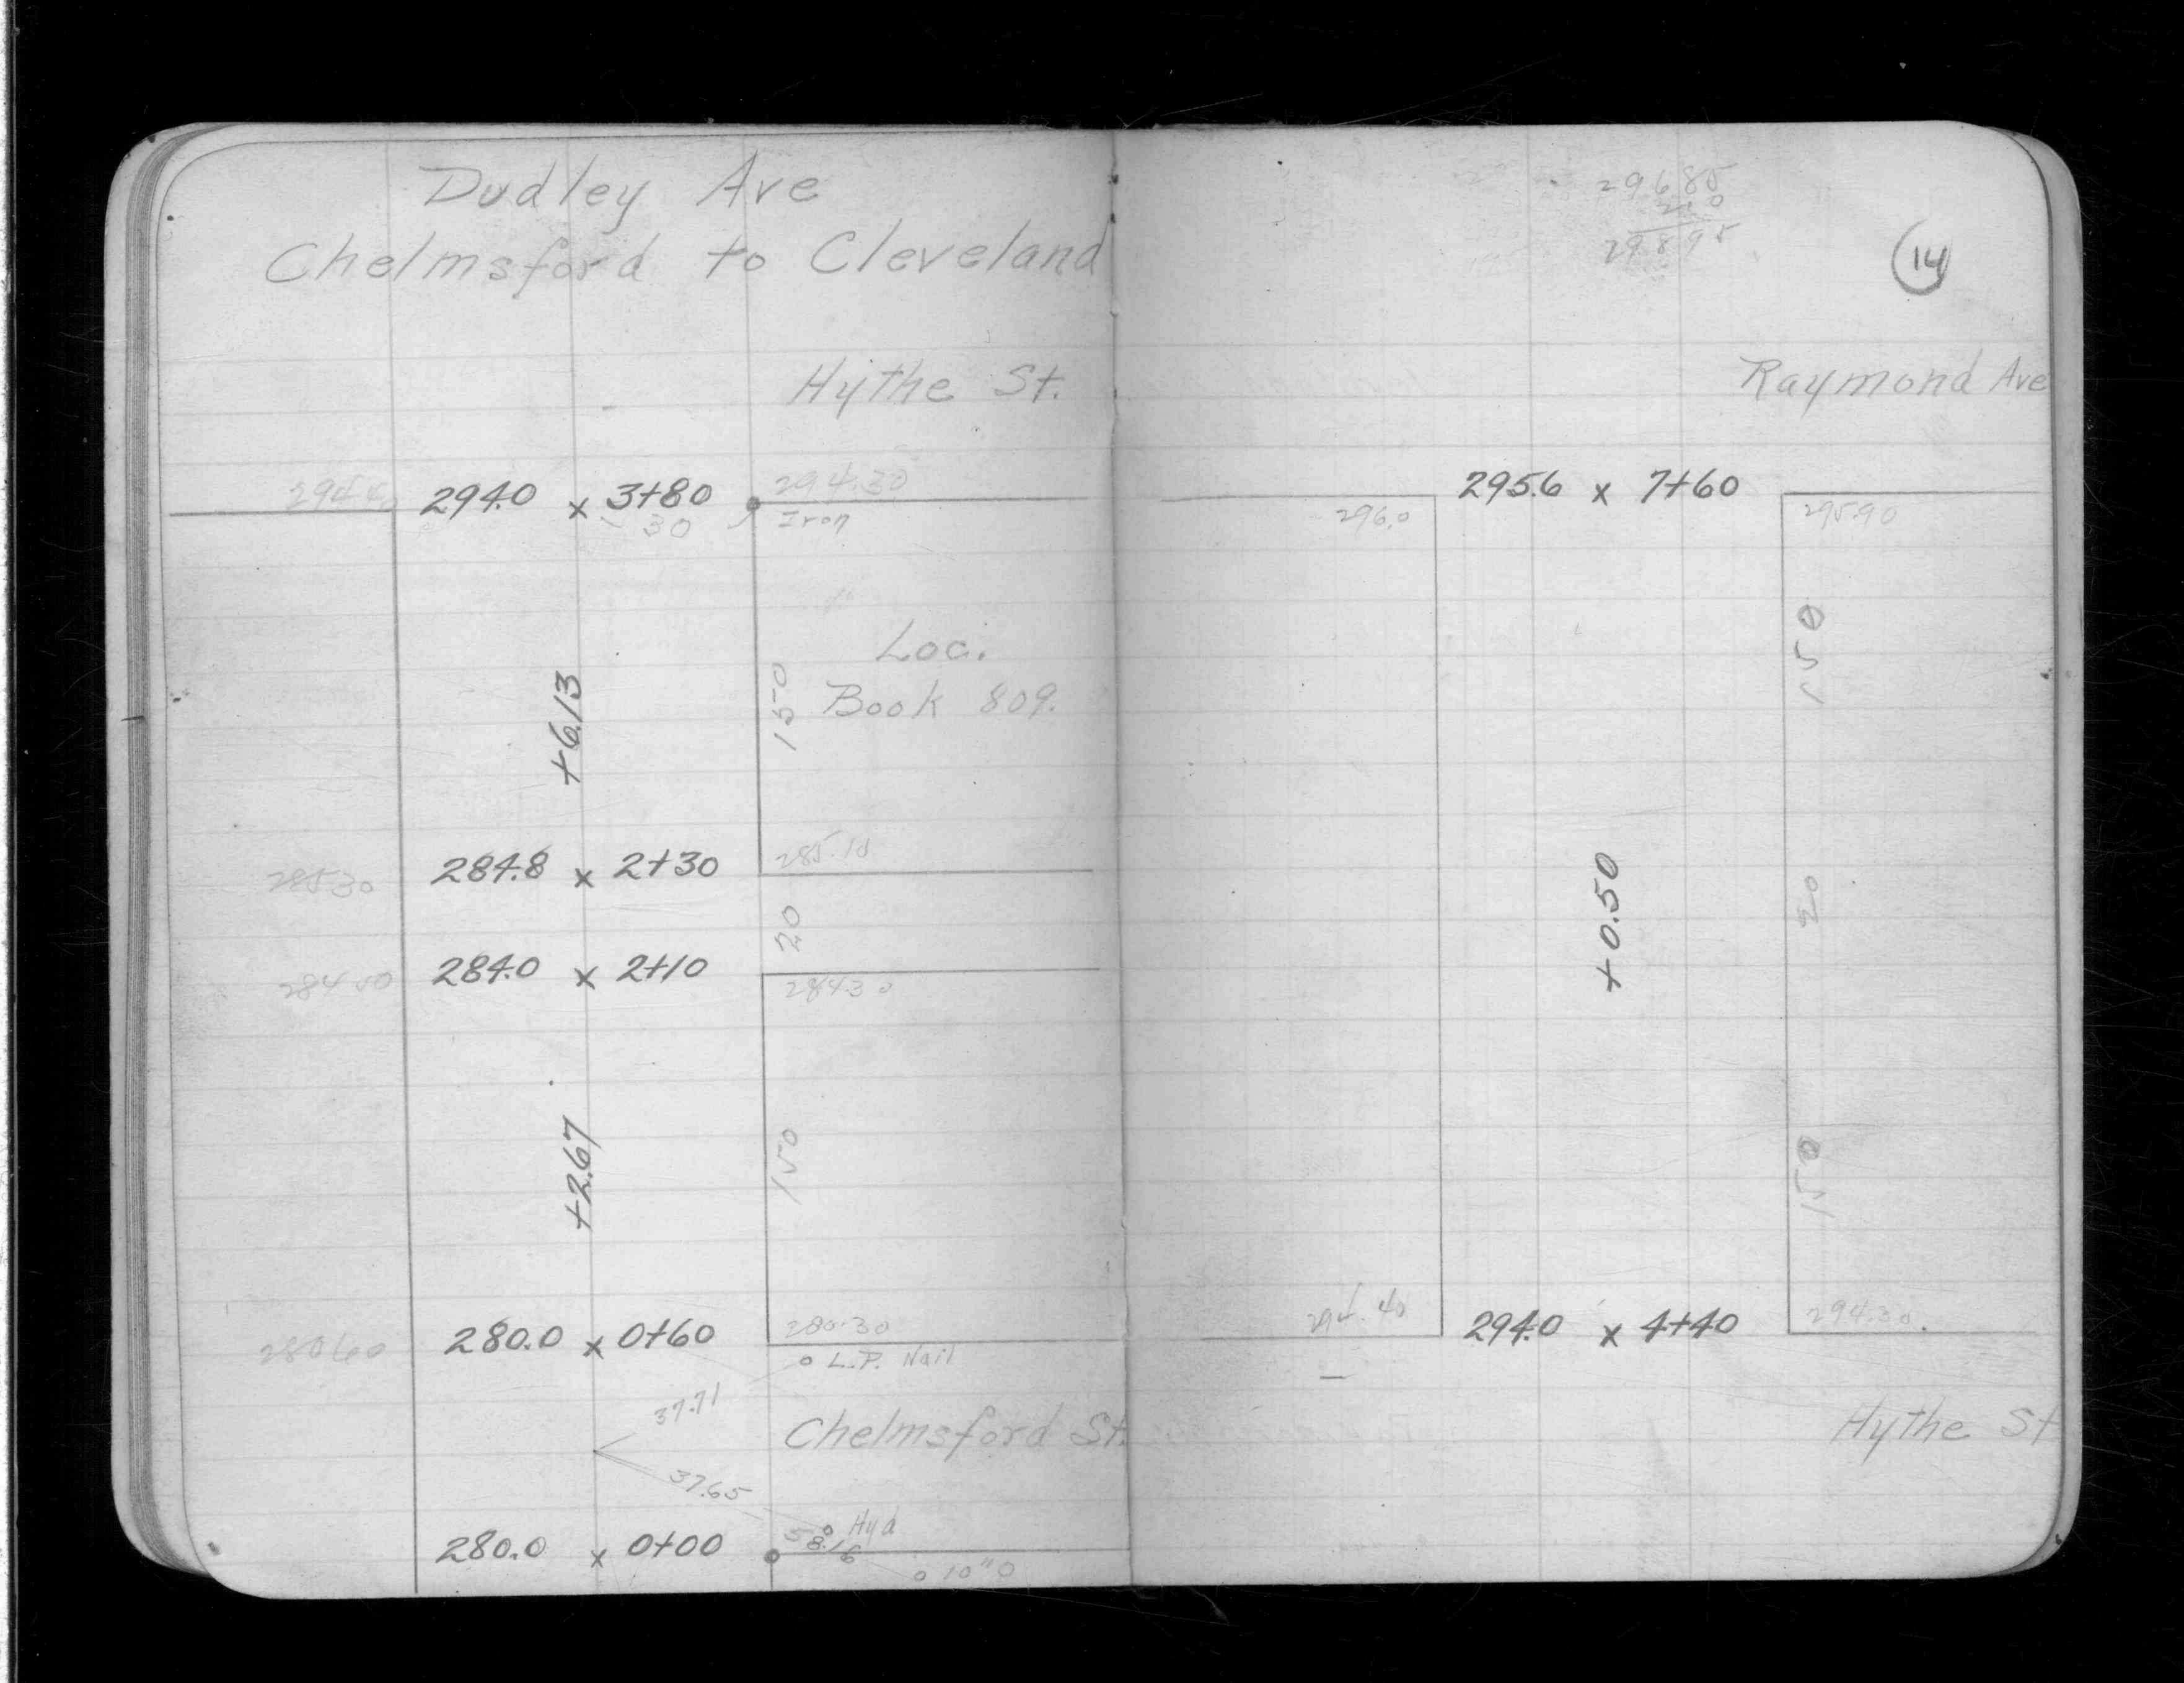 Dudley Ave
Chelmsford to Cleveland
Hythe St.
294.40 294.0 x 3+80 294.30
30 Iron
+6.13
150
Loc.
Book 809.
285.30 284.8 x 2+30 285.10
20
284.50 284.0 x 2+10 284.30
+2.67
150
280.60 280.0 x 0+60 280.30
o L.P. Nail
37.71
Chelmsford St.
37.65
Hyd
58.16
280.0 x 0+00
o 10" O
296.85
2.0
298.95
14
Raymond Ave
295.6 x 7+60
296.0 295.90
150
+0.50
20
150
294.40 294.0 x 4+40 294.30
Hythe St